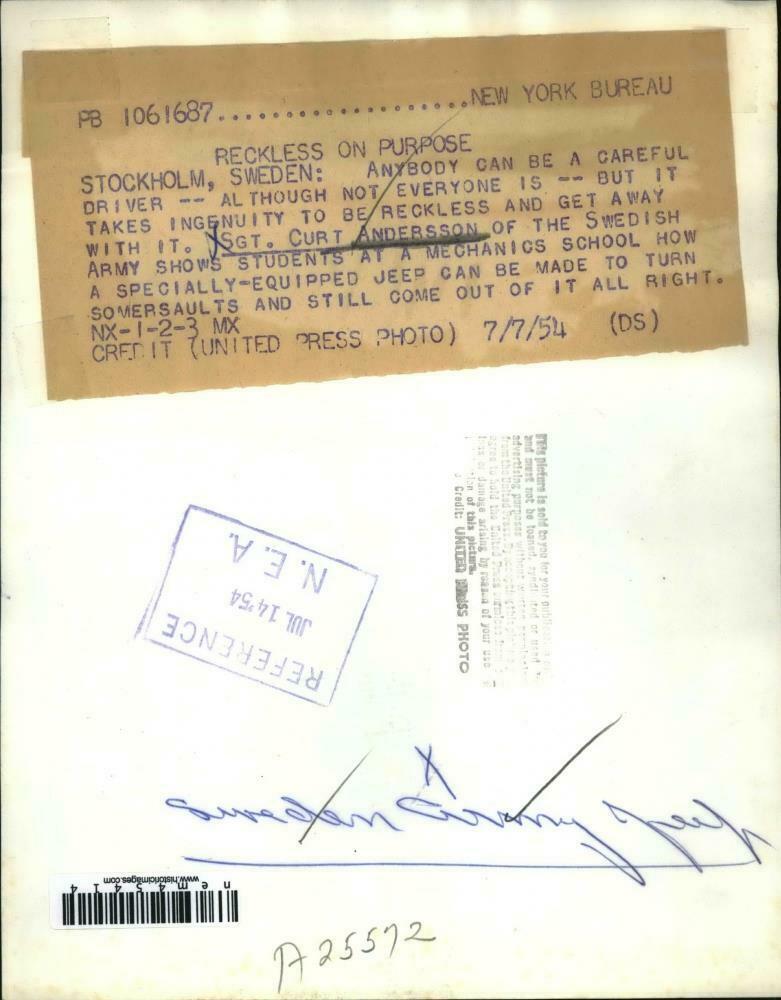 PB 1061687....................NEW YORK BUREAU
RECKLESS ON PURPOSE
STOCKHOLM, SWEDEN: ANYBODY CAN BE A CAREFUL
DRIVER -- ALTHOUGH NOT EVERYONE IS -- BUT IT
TAKES INGENUITY TO BE RECKLESS AND GET AWAY
WITH IT. SGT. CURT ANDERSSON OF THE SWEDISH
ARMY SHOWS STUDENTS AT A MECHANICS SCHOOL HOW
A SPECIALLY-EQUIPPED JEEP CAN BE MADE TO TURN
SOMERSAULTS AND STILL COME OUT OF IT ALL RIGHT.
NX-1-2-3 MX
CREDIT (UNITED PRESS PHOTO) 7/7/54 (DS)
This picture is sold to you for your
and must not be loaned, or used
advertising purposes without written
from the United Press.
agree to hold the United Press harmless from
loss or damage arising by reason of your use
of this picture.
Credit: UNITED PRESS PHOTO
REFERENCE
JUL 14 '54
N.E.A.
Sweden Army Jeep
www.historicimages.com
nem43414
A25572